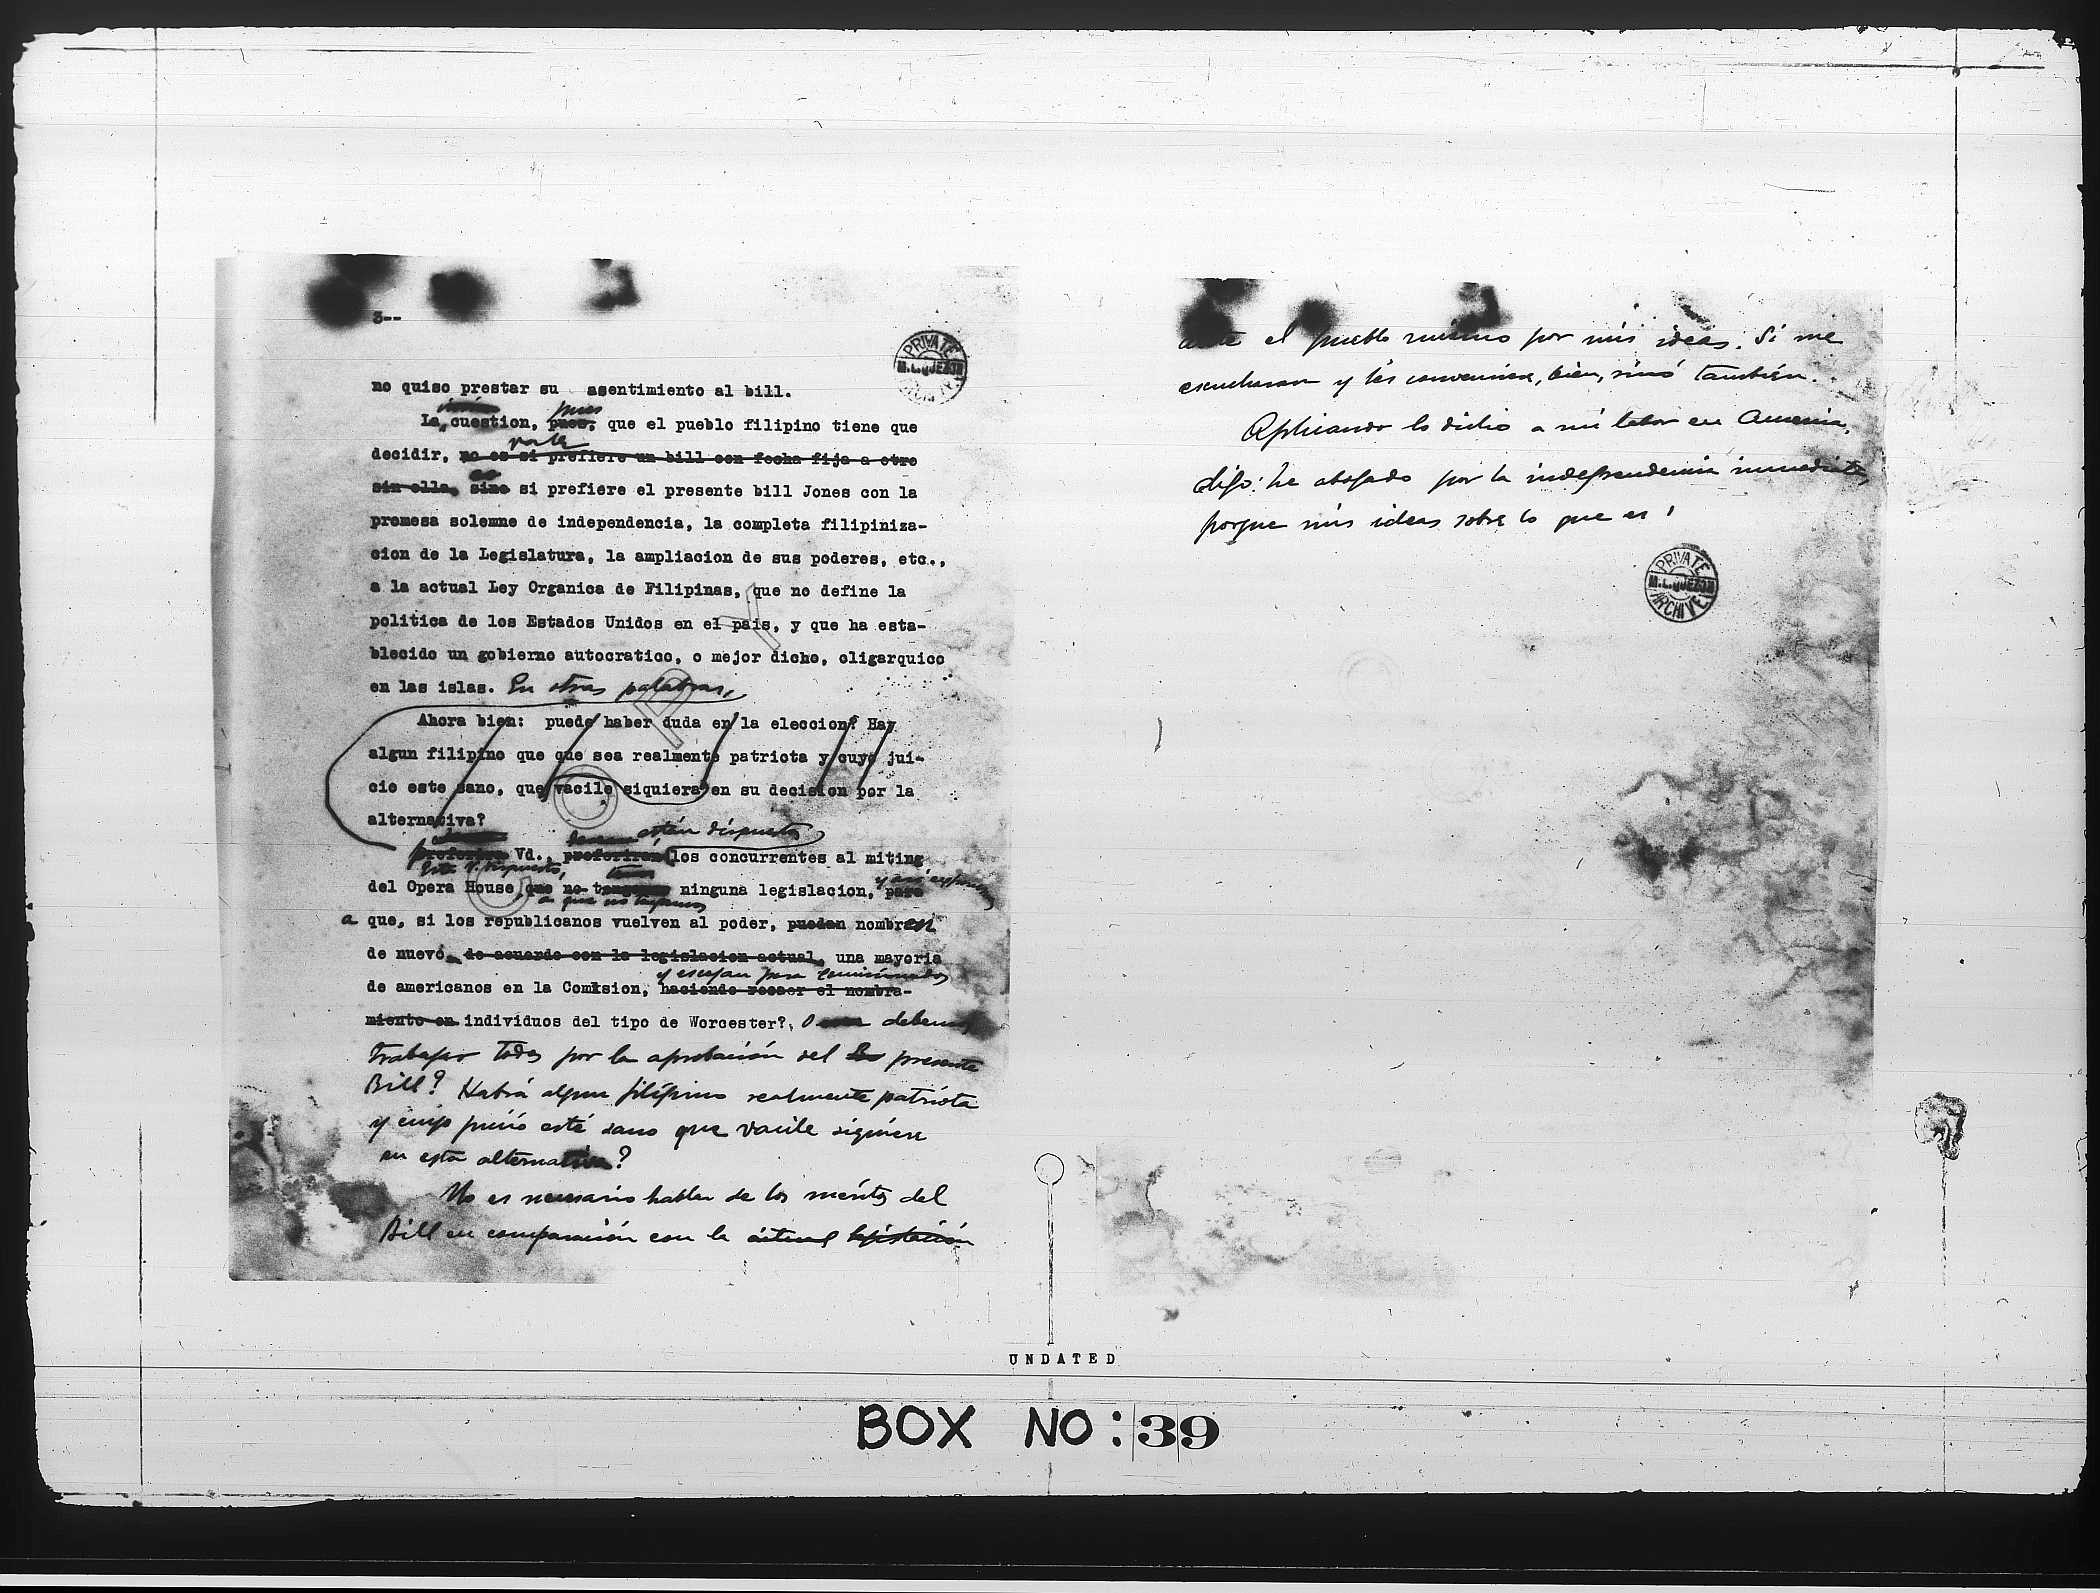 3--
PRIVATE
M. L. QUEZON
no quiso prestar su asentimiento al bill.
pues
La cuestion, pues, que el pueblo filipino tiene que
decidir, no es si prefiere un bill con fecha fija a otro
es
sin ella, sino si prefiere el presente bill Jones con la
promesa solemne de independencia, la completa filipiniza-
cion de la Legislatura, la ampliacion de sus poderes, etc.,
a la actual Ley Organica de Filipinas, que no define la
politica de los Estados Unidos en el pais, y que ha esta-
blecido un gobierno autocratico, o mejor dicho, oligarquico
en las islas. En otras palabras,
Ahora bien: puede haber duda en la eleccion? Hay
algun filipino que que sea realmente patriota y cuyo jui-
cio este sano, que vacile siquiera en su decision por la
alternativa?
están dispuestos
Vd., preferiran los concurrentes al miting
Está V. dispuesto,
del Opera House, que no ninguna legislacion, para
a que no tengamos
a que, si los republicanos vuelven al poder, puedan nombren
de nuevo, de acuerdo con la legislacion actual, una mayoria
y escojan para comisionados
de americanos en la Comision, haciendo recaer el nombra-
miento en individuos del tipo de Worcester?, O debemos
trabajar todos por la aprobación del presente
Bill? Habrá algun filipino realmente patriota
y cuyo juicio esté sano que vacile siquiera
en esta alternativa?
No es necesario hablar de los meritos del
Bill en comparación con la actual legislación
ante el pueblo mismo por mis ideas. Si me
escucharan y les convenciera, bien, sinó también.
Aplicando lo dicho a mi labor en America,
digo: he abogado por la independencia inmediata,
porque mis ideas sobre lo que es
PRIVATE
M. L. QUEZON
ARCHIVE
UNDATED
BOX NO: 39